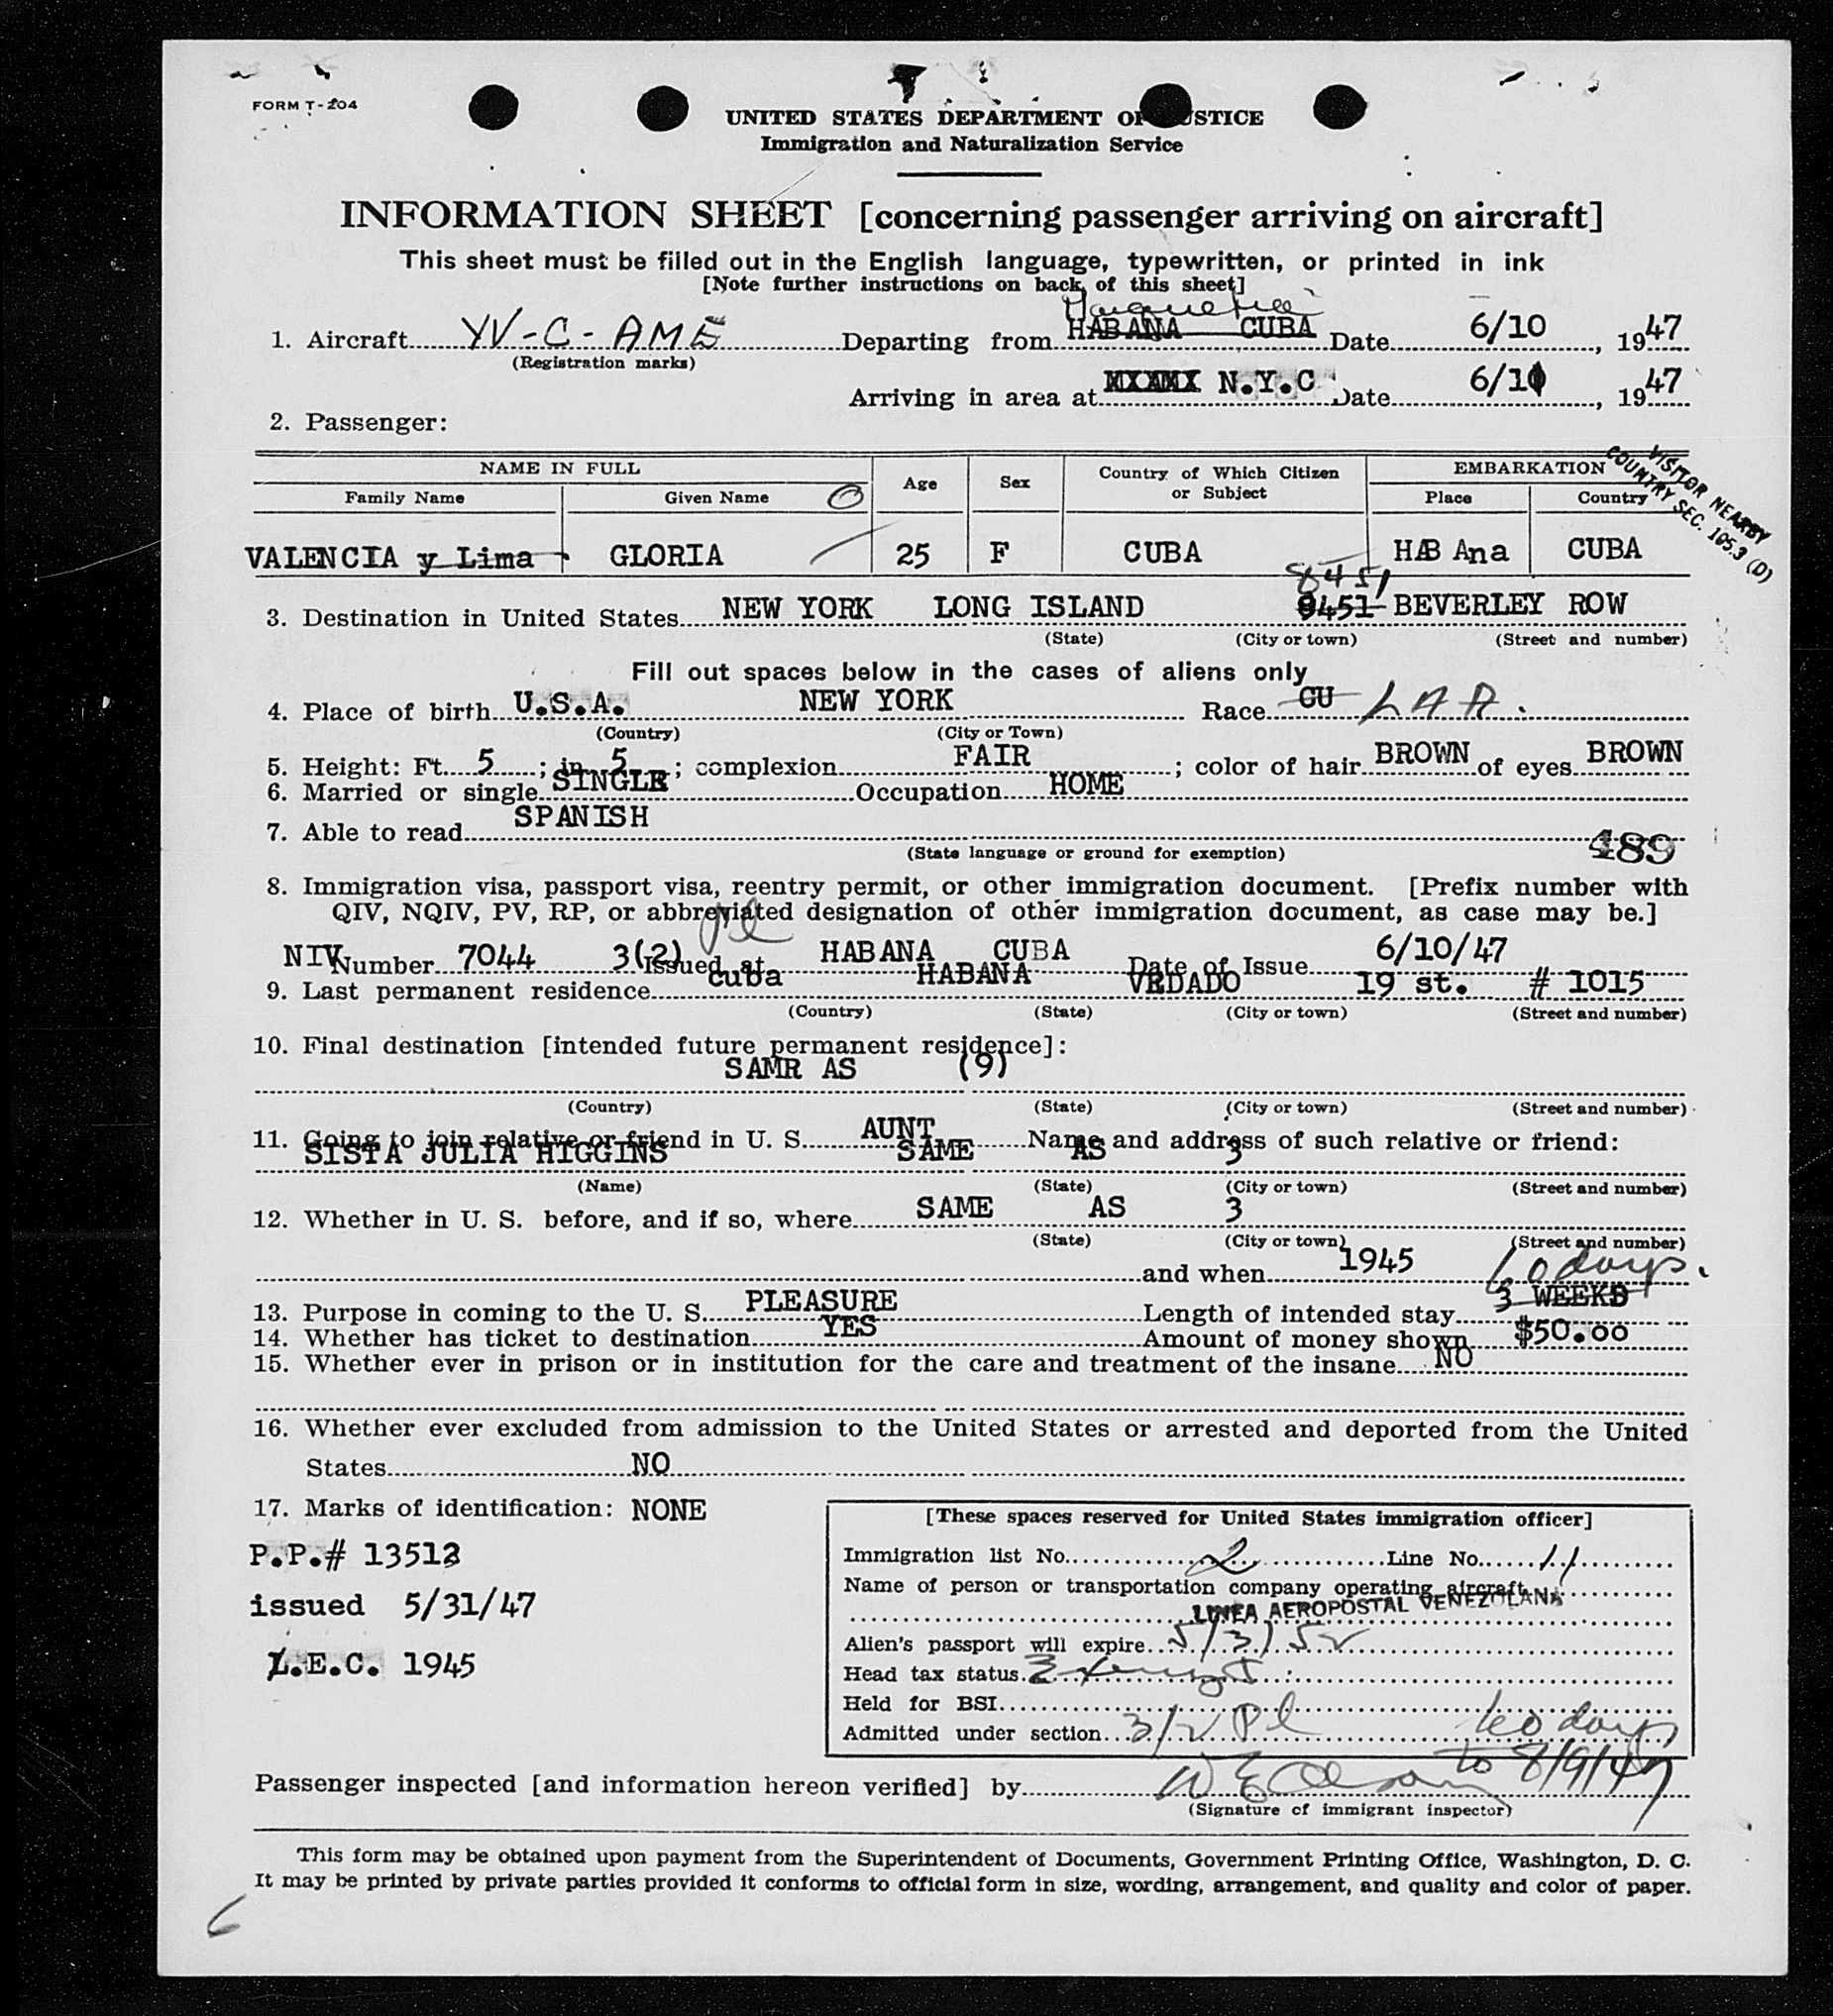 FORM T-204
UNITED STATES DEPARTMENT OF JUSTICE
Immigration and Naturalization Service
INFORMATION SHEET [concerning passenger arriving on aircraft]
This sheet must be filled out in the English language, typewritten, or printed in ink
[Note further instructions on back of this sheet]
1. Aircraft YV-C-AME Departing from HABANA CUBA Date 6/10, 1947
(Registration marks)
Arriving in area at MIAMI N.Y.C Date 6/10, 1947
2. Passenger:
NAME IN FULL Age Sex Country of Which Citizen or Subject EMBARKATION
Family Name Given Name Place Country
VISITOR NEARBY
COUNTRY SEC. 105.3 (D)
VALENCIA y Lima GLORIA 25 F CUBA HAB Ana CUBA
8451
3. Destination in United States NEW YORK LONG ISLAND 8451 BEVERLEY ROW
(State) (City or town) (Street and number)
Fill out spaces below in the cases of aliens only
4. Place of birth U.S.A. NEW YORK Race CU LAA.
(Country) (City or Town)
5. Height: Ft. 5; in. 5; complexion FAIR; color of hair BROWN of eyes BROWN
6. Married or single SINGLE Occupation HOME
7. Able to read SPANISH
(State language or ground for exemption) 489
8. Immigration visa, passport visa, reentry permit, or other immigration document. [Prefix number with
QIV, NQIV, PV, RP, or abbreviated designation of other immigration document, as case may be.]
NIV Number 7044 3(2) Pl Issued at HABANA CUBA Date of Issue 6/10/47
9. Last permanent residence cuba HABANA VEDADO 19 st. # 1015
(Country) (State) (City or town) (Street and number)
10. Final destination [intended future permanent residence]:
SAMR AS (9)
(Country) (State) (City or town) (Street and number)
11. Going to join relative or friend in U. S. AUNT Name and address of such relative or friend:
SISTA JULIA HIGGINS SAME AS 3
(Name) (State) (City or town) (Street and number)
12. Whether in U. S. before, and if so, where SAME AS 3
(State) (City or town) (Street and number)
and when 1945 60 days.
13. Purpose in coming to the U. S. PLEASURE Length of intended stay 3 WEEKS
14. Whether has ticket to destination YES Amount of money shown $50.00
15. Whether ever in prison or in institution for the care and treatment of the insane NO
16. Whether ever excluded from admission to the United States or arrested and deported from the United
States NO
17. Marks of identification: NONE
P.P.# 13513
issued 5/31/47
L.E.C. 1945
[These spaces reserved for United States immigration officer]
Immigration list No. 2 Line No. 11
Name of person or transportation company operating aircraft
LINEA AEROPOSTAL VENEZOLANA
Alien's passport will expire 5/31/52
Head tax status Exempt
Held for BSI
Admitted under section 3/2 Pl 60 days
to 8/9/47
Passenger inspected [and information hereon verified] by
(Signature of immigrant inspector)
This form may be obtained upon payment from the Superintendent of Documents, Government Printing Office, Washington, D. C.
It may be printed by private parties provided it conforms to official form in size, wording, arrangement, and quality and color of paper.
6